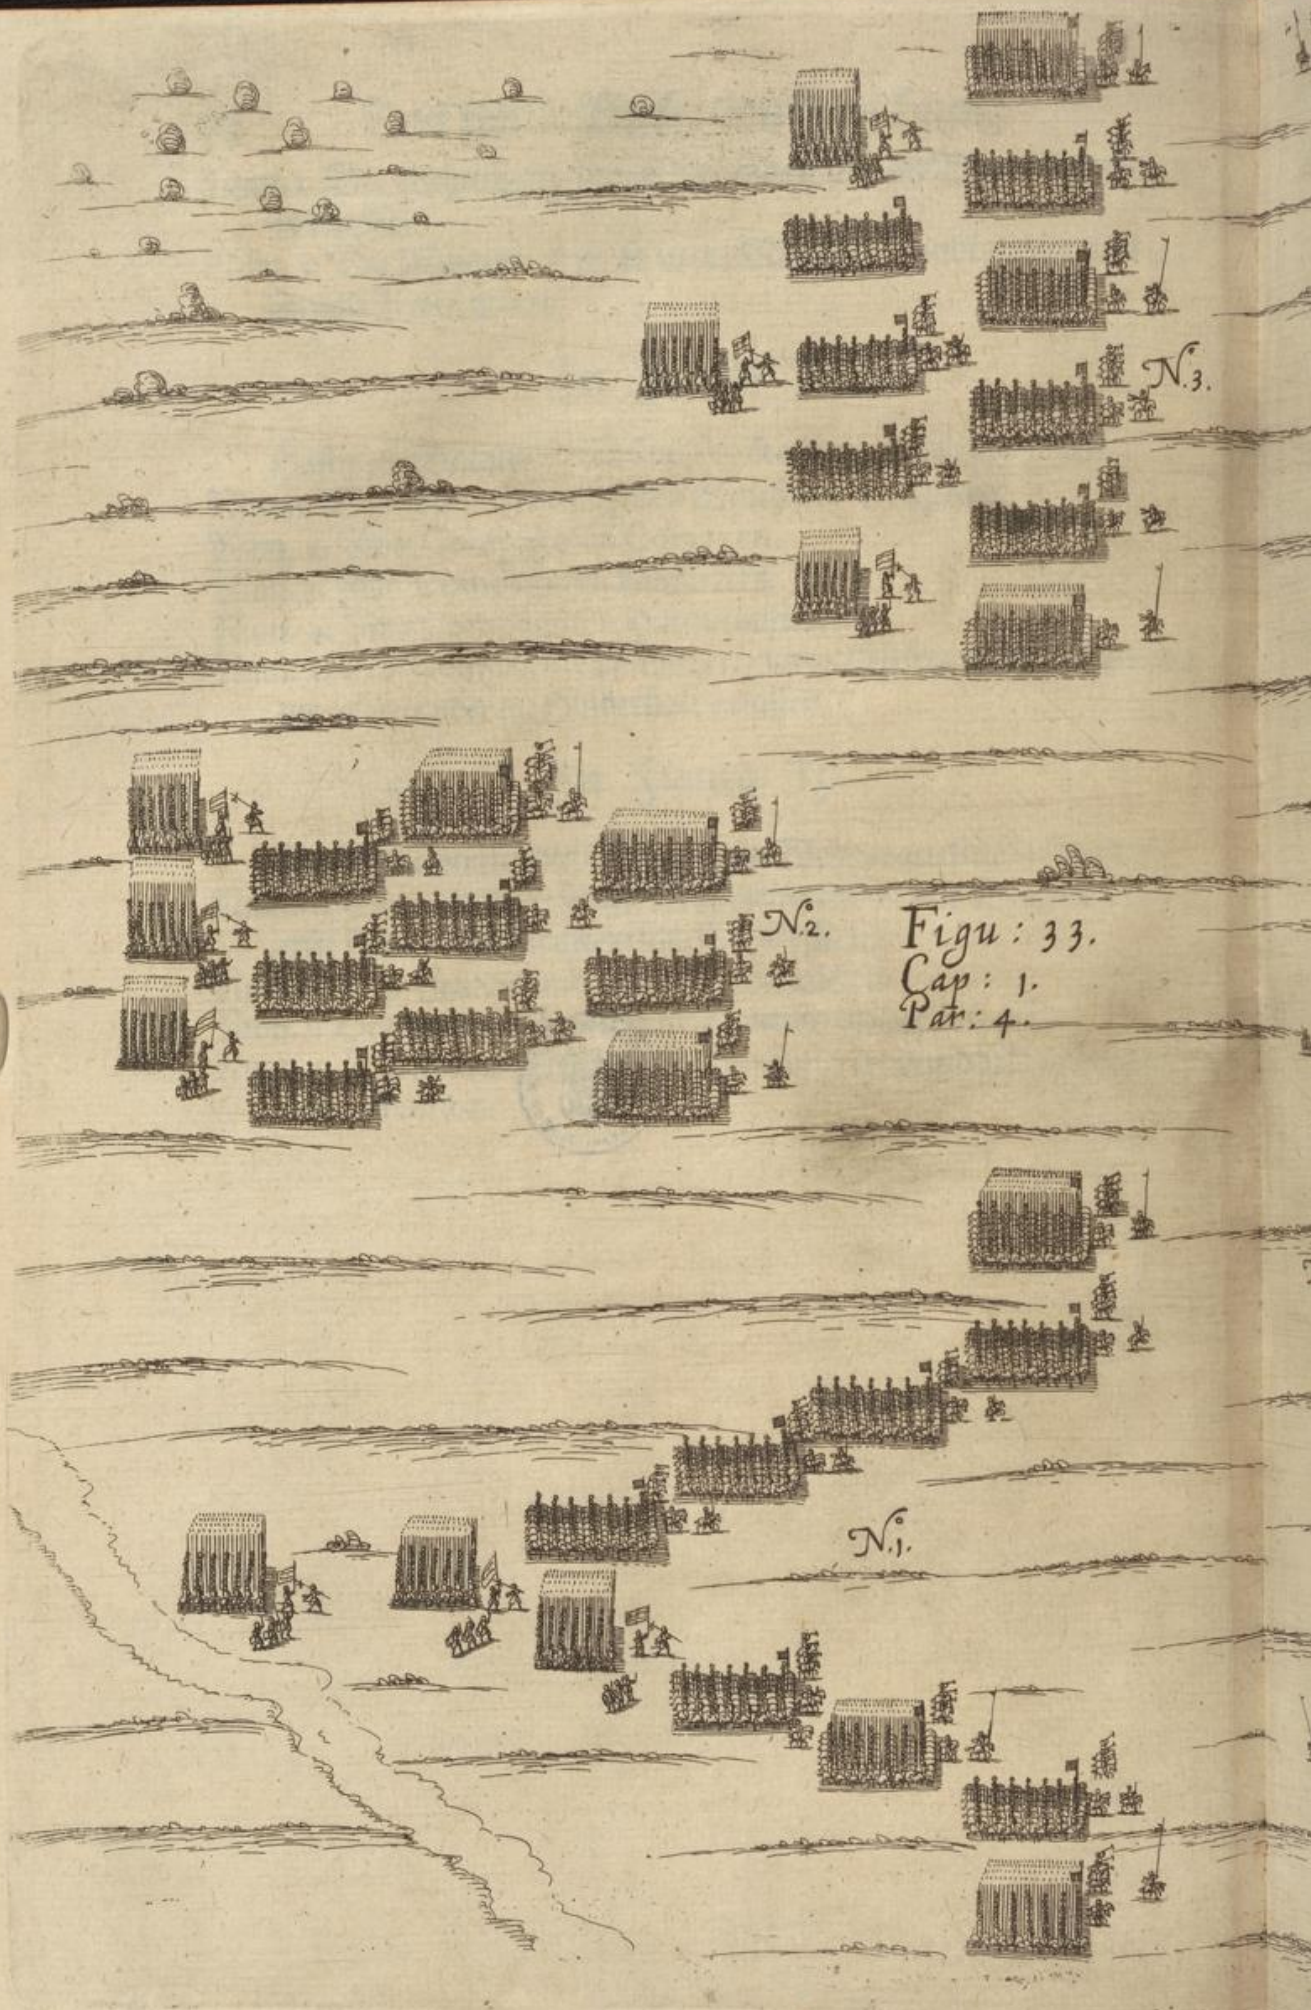 N.º3.
N.º2.
Figu: 33.
Cap: 1.
Par: 4.
N.º1.